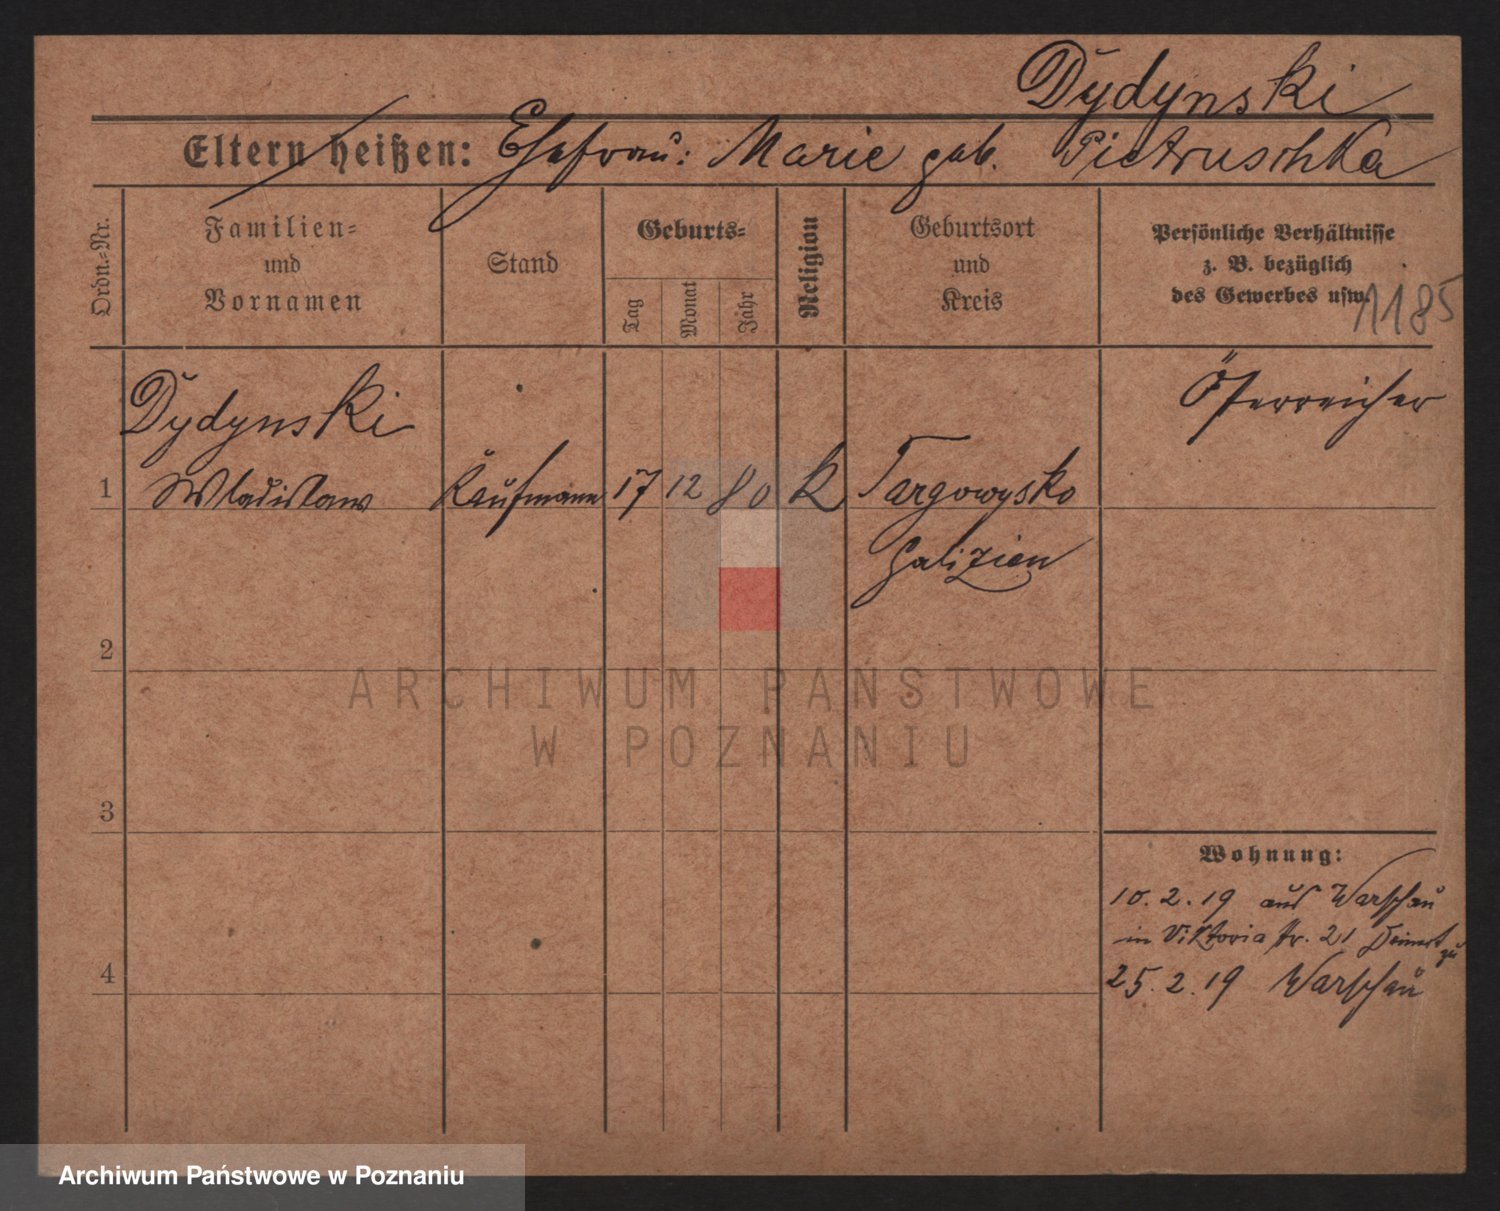 Dydynski
Eltern heißen: Ehefrau: Marie geb. Pietruschka
Ordn.-Nr.
Familien-
und
Vornamen
Stand
Geburts-
Tag
Monat
Jahr
Religion
Geburtsort
und
Kreis
Persönliche Verhältnisse
z. B. bezüglich
des Gewerbes usw.
1185
Dydynski
Österreicher
1 Wladislaw Kaufmann 17 12 80 k Targowysko
Galizien
2
3
4
Wohnung:
10.2.19 aus Warschau
in Viktoriastr. 21
zu
25.2.19 Warschau
ARCHIWUM PAŃSTWOWE
W POZNANIU
Archiwum Państwowe w Poznaniu